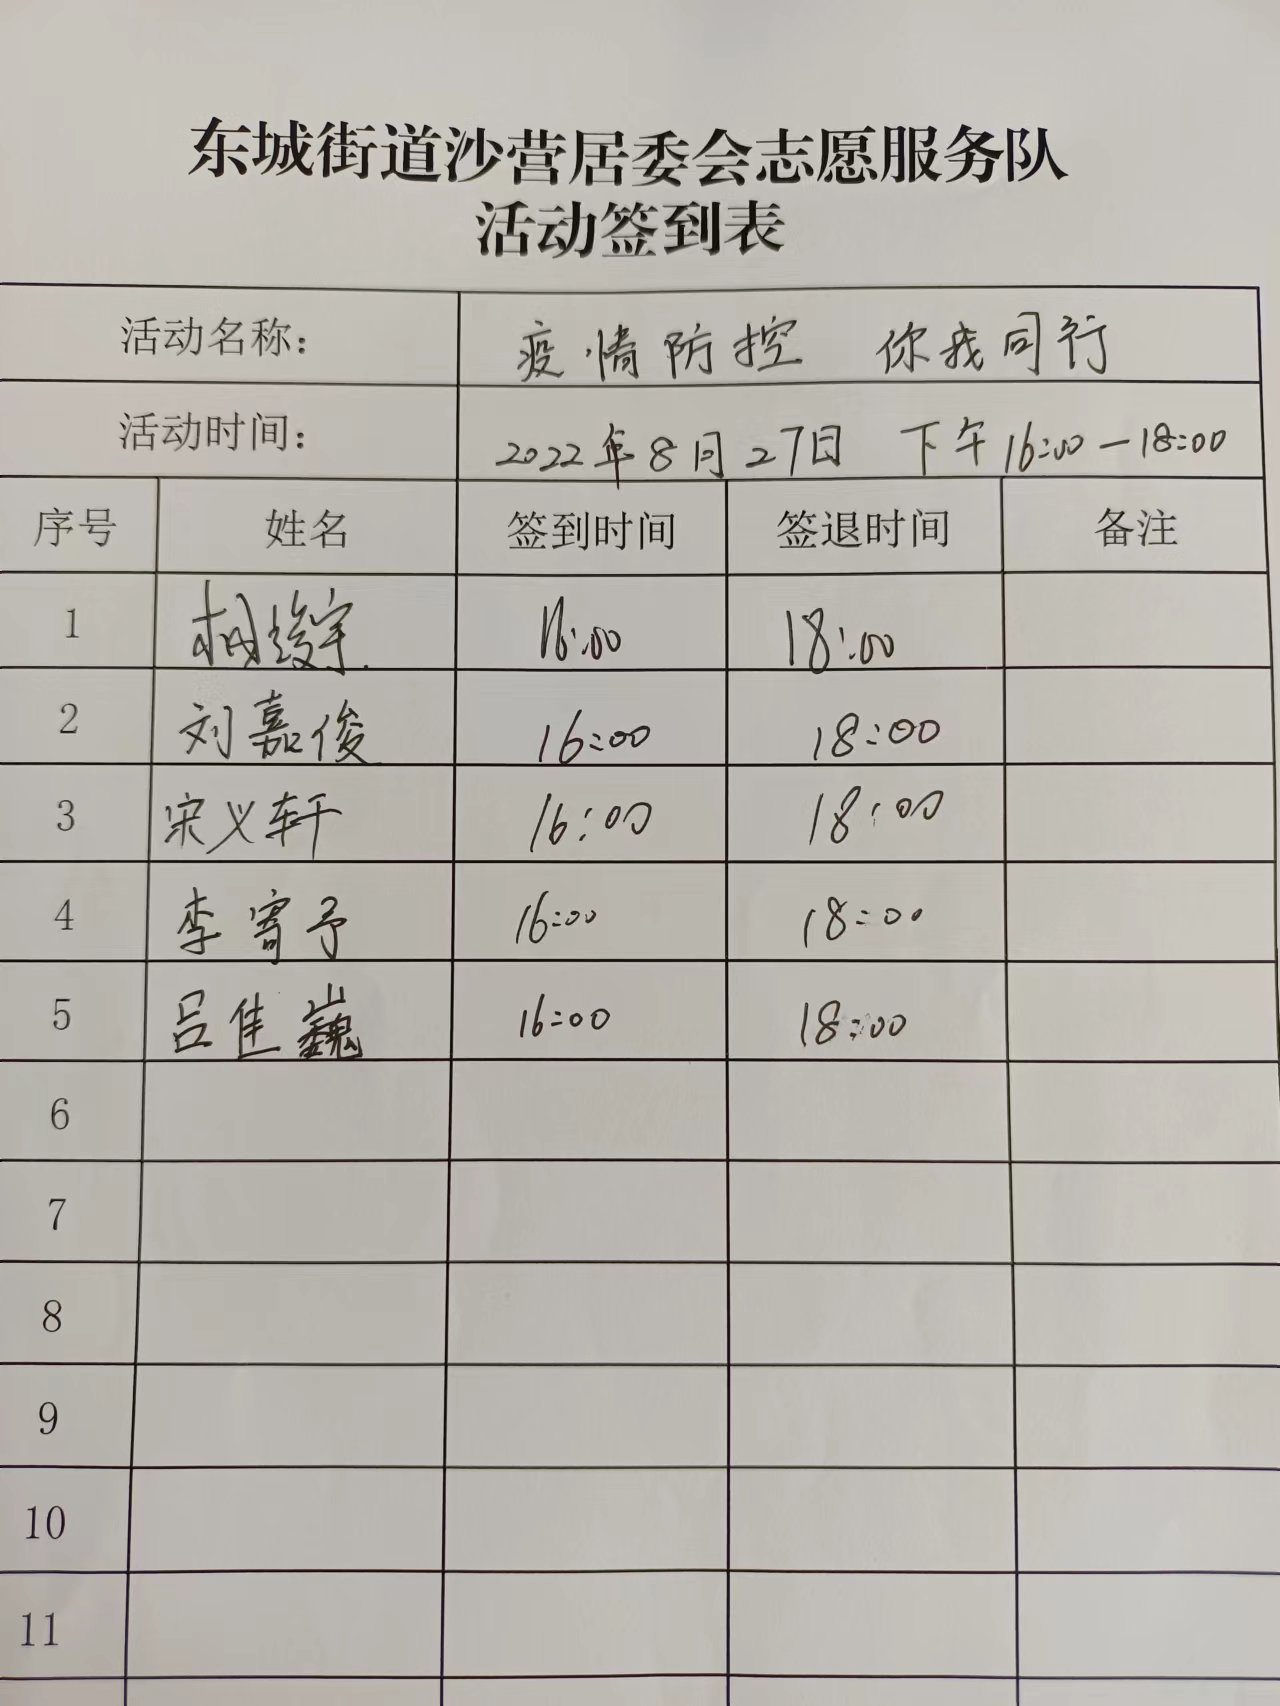 东城街道沙营居委会志愿服务队
活动签到表
活动名称： 疫情防控 你我同行
活动时间： 2022年8月27日 下午16:00—18:00
序号 姓名 签到时间 签退时间 备注
1 相竣宇 16:00 18:00
2 刘嘉俊 16:00 18:00
3 宋义轩 16:00 18:00
4 李寄予 16:00 18:00
5 吕佳巍 16:00 18:00
6
7
8
9
10
11